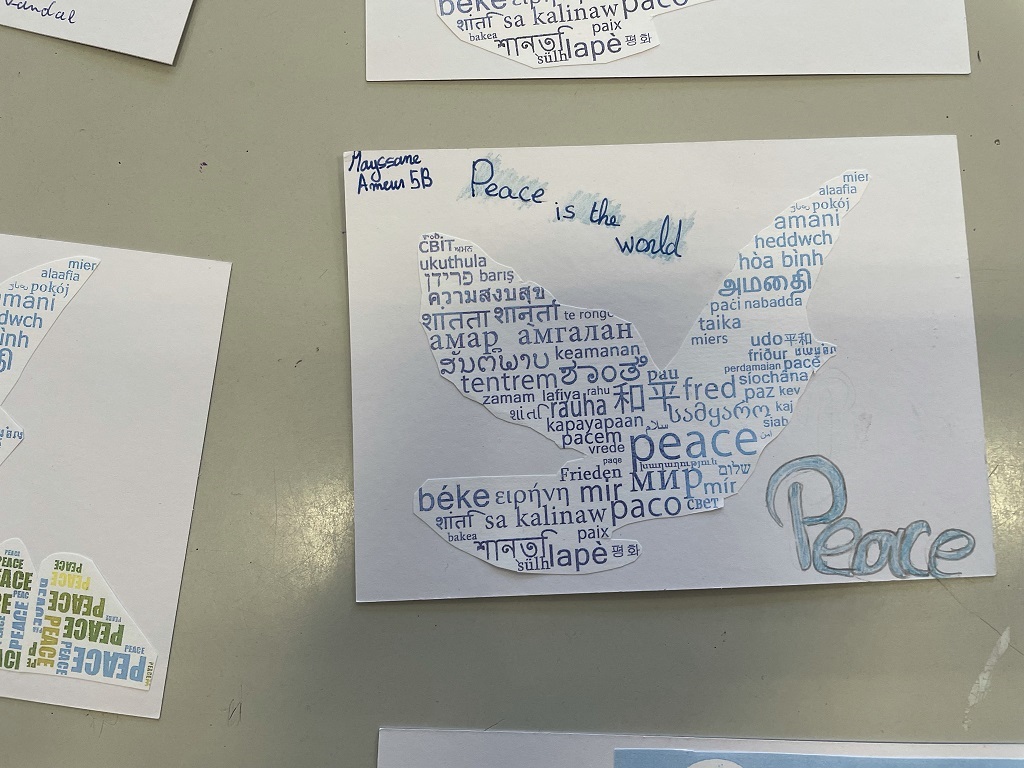 Vandal
béke
शांती sa kalinaw paco
bakea
paix
শান্তি lapè 평화
sülh
Mayssane
Ameur 5B
Peace
is the
world
mier
alaafia
pokój
amáni
heddwch
hòa bình
அமைதி
paċi nabadda
taika
miers
udo 平和
friður
perdamaian pace
síochána
paz kev
kaj
siab
СВІТ
ukuthula
פרידן barış
ความสงบสุข
शांतता शान्ती te rongo
амар амгалан
keamanan
tentrem
zamam lafiya rahu
rauha 和平 fred
pau
სამყარო
kapayapaan سلام
pacem
vrede
peace
paqe
Frieden
խաղաղություն
мир
שלום
mír
béke ειρήνη mir
paco
свет
शांती sa kalinaw
bakea
paix
শান্তি lapè 평화
sülh
Peace
mier
alaafia
pokój
amáni
dwch
bình
PEACE
PEACE
PEACE
PEACE
PEACE
PEACE